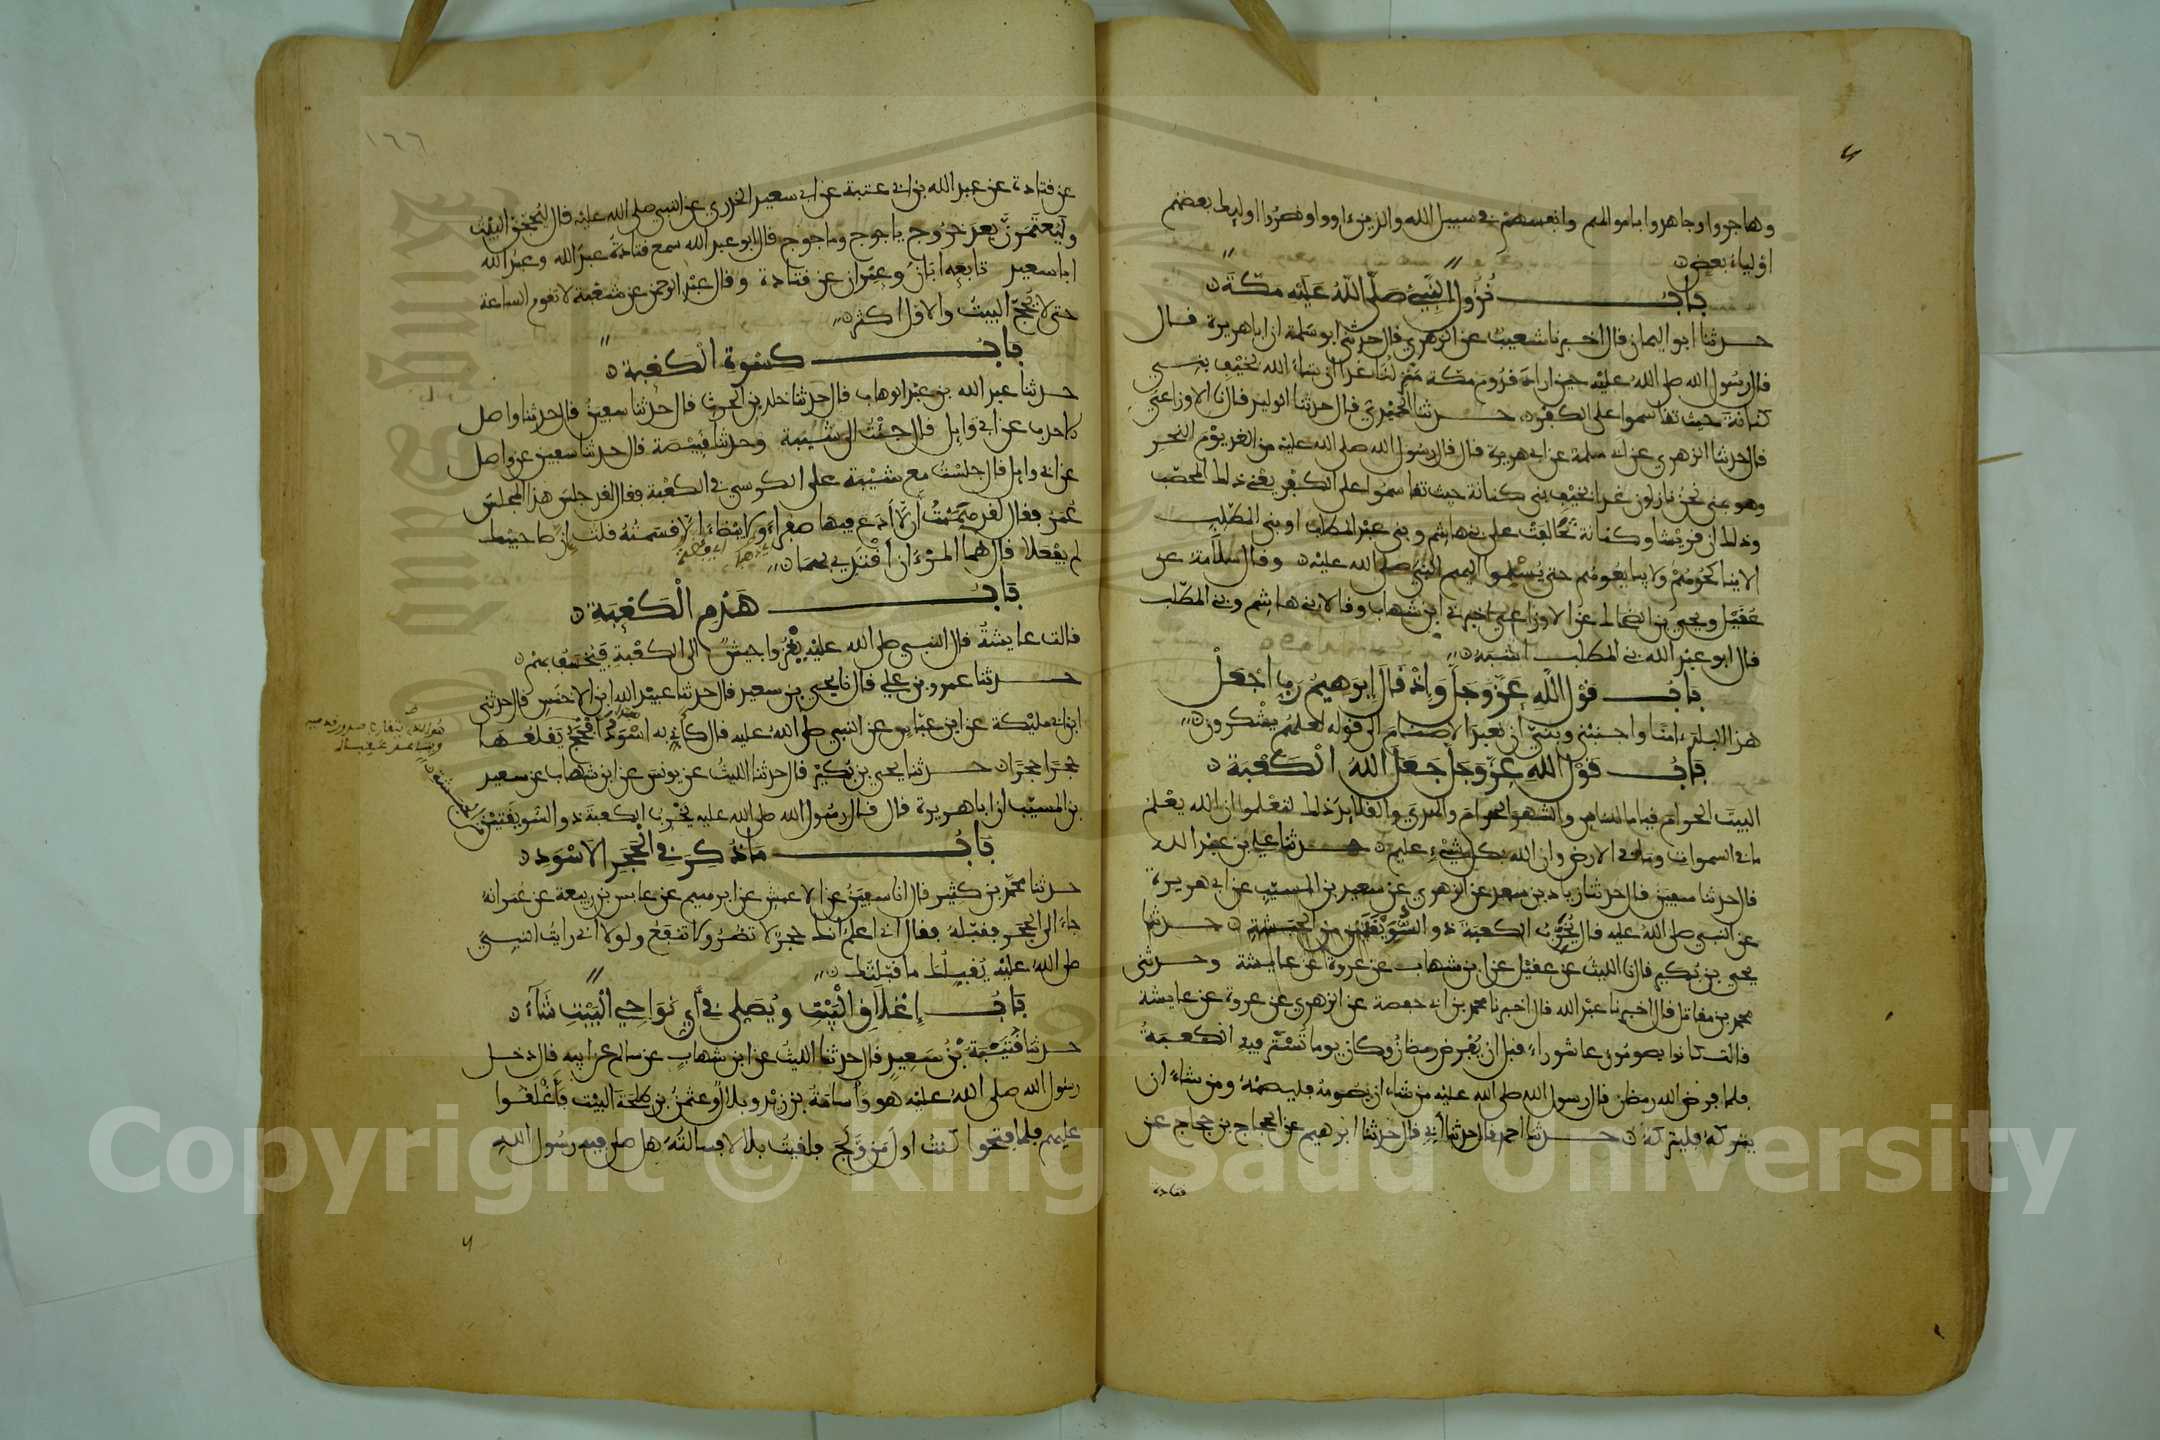 وهاجروا وجاهدوا باموالهم وانفسهم في سبيل الله والذين ءاووا ونصروا اوليك بعضهم
اولياء بعض
باب نزول النبي صلى الله عليه مكة
حدثنا ابو اليمان قال اخبرنا شعيب عن الزهري قال حدثني ابو سلمة ان ابا هريرة قال
قال رسول الله صلى الله عليه حين اراد قدوم مكة منزلنا غدا ان شاء الله بخيف بني
كنانة حيث تقاسموا على الكفر حدثنا الحميدي قال حدثنا الوليد قال نا الاوزاعي
قال حدثنا الزهري عن ابي سلمة عن ابي هريرة قال قال رسول الله صلى الله عليه من الغد يوم النحر
وهو بمنى نحن نازلون غدا بخيف بني كنانة حيث تقاسموا على الكفر يعني ذلك المحصب
وذلك ان قريشا وكنانة تحالفت على بني هاشم وبني عبد المطلب او بني المطلب
الا يناكحوهم ولا يبايعوهم حتى يسلموا اليهم النبي صلى الله عليه وقال سلامة عن
عقيل ويحيى بن الضحاك عن الاوزاعي اخبرني ابن شهاب وقالا بني هاشم وبني المطلب
قال ابو عبد الله بني المطلب اشبه
باب قول الله عز وجل واذ قال ابرهيم رب اجعل
هذا البلد ءامنا واجنبني وبني ان نعبد الاصنام الى قوله لعلهم يشكرون
باب قول الله عز وجل جعل الله الكعبة
البيت الحرام قياما للناس والشهر الحرام والهدي والقلايد ذلك لتعلموا ان الله يعلم
ما في السموات وما في الارض وان الله بكل شيء عليم حدثنا علي بن عبد الله
قال حدثنا سفين قال حدثنا زياد بن سعد عن الزهري عن سعيد بن المسيب عن ابي هريرة
عن النبي صلى الله عليه قال يخرب الكعبة ذو السويقتين من الحبشة حدثنا
يحيى بن بكير قال نا الليث عن عقيل عن ابن شهاب عن عروة عن عايشة وحدثني
محمد بن مقاتل قال اخبرنا عبد الله قال اخبرنا محمد بن ابي حفصة عن الزهري عن عروة عن عايشة
قالت كانوا يصومون عاشوراء قبل ان يفرض رمضان وكان يوما تستر فيه الكعبة
فلما فرض الله رمضان قال رسول الله صلى الله عليه من شاء ان يصومه فليصمه ومن شاء ان
يتركه فليتركه حدثنا احمد قال حدثنا ابي قال حدثنا ابرهيم عن الحجاج بن حجاج عن
قتادة
١٦٦
عن قتادة عن عبد الله بن ابي عتبة عن ابي سعيد الخدري عن النبي صلى الله عليه قال ليحجن البيت
وليعتمرن بعد خروج ياجوج وماجوج قال ابو عبد الله سمع قتادة عبد الله وعبد الله
ابا سعيد تابعه ابان وعمران عن قتادة وقال عبد الرحمن عن شعبة لا تقوم الساعة
حتى لا يحج البيت والاول اكثر
باب كسوة الكعبة
حدثنا عبد الله بن عبد الوهاب قال حدثنا خلد بن الحرث قال حدثنا سفين قال حدثنا واصل
الاحدب عن ابي وايل قال جئت الى شيبة وحدثنا قبيصة قال حدثنا سفين عن واصل
عن ابي وايل قال جلست مع شيبة على الكرسي في الكعبة فقال لقد جلس هذا المجلس
عمر فقال لقد هممت ان لا ادع فيها صفراء ولا بيضاء الا قسمته قلت ان صاحبيك
لم يفعلا قال هما المرءان اقتدي بهما
باب هدم الكعبة
قالت عايشة قال النبي صلى الله عليه يغزوا جيش الى الكعبة فيخسف بهم
حدثنا عمرو بن علي قال نا يحيى بن سعيد قال حدثنا عبيد الله ابن الاخنس قال حدثني
ابن ابي مليكة عن ابن عباس عن النبي صلى الله عليه قال كاني به اسود افحج يقلعها
حجرا حجرا حدثنا يحيى بن بكير قال حدثنا الليث عن يونس عن ابن شهاب عن سعيد
بن المسيب ان ابا هريرة قال قال رسول الله صلى الله عليه يخرب الكعبة ذو السويقتين من الحبشة
باب ما ذكر في الحجر الاسود
حدثنا محمد بن كثير قال انا سفين عن الاعمش عن ابرهيم عن عابس بن ربيعة عن عمر انه
جاء الى الحجر فقبله فقال اني اعلم انك حجر لا تضر ولا تنفع ولولا اني رايت النبي
صلى الله عليه يقبلك ما قبلتك
باب اغلاق البيت ويصلي في أي نواحي البيت شاء
حدثنا قتيبة بن سعيد قال حدثنا الليث عن ابن شهاب عن سالم عن ابيه قال دخل
رسول الله صلى الله عليه هو واسامة بن زيد وبلال وعثمن بن طلحة البيت فأغلقوا
عليهم فلما فتحوا كنت اول من ولج فلقيت بلالا فسالته هل صلى فيه رسول الله
Copyright © King Saud University